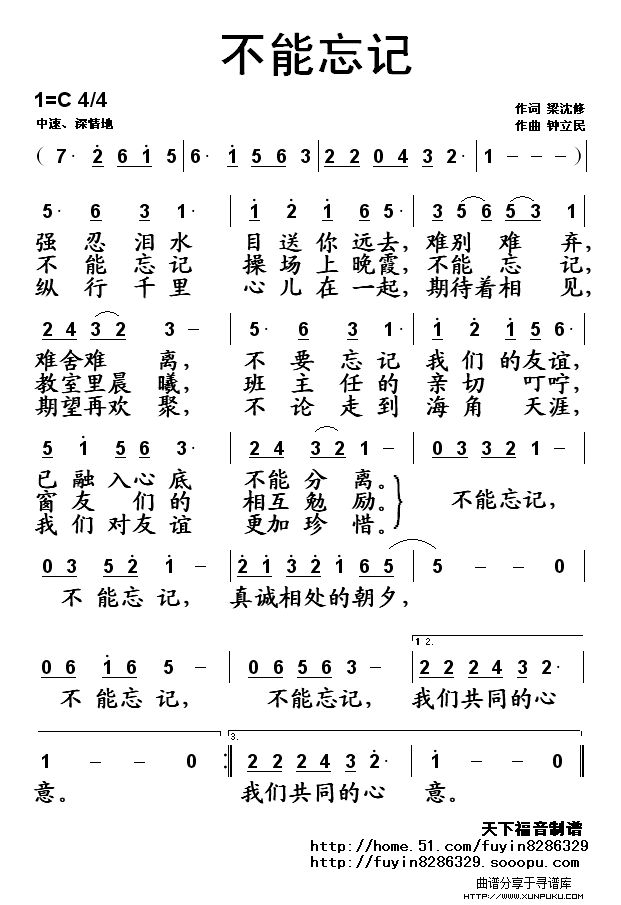 不能忘记
1=C 4/4
作词 梁沈修
中速、深情地
作曲 钟立民
( 7· 2 6 1 5 | 6· 1 5 6 3 | 2 2 0 4 3 2· | 1 - - - )
5· 6 3 1· | 1 2 1 6 5· | 3 5 6 5 3 1 |
强 忍 泪 水 目 送 你 远 去, 难 别 难 弃,
不 能 忘 记 操 场 上 晚 霞, 不 能 忘 记,
纵 行 千 里 心 儿 在 一 起, 期 待 着 相 见,
2 4 3 2 3 - | 5· 6 3 1· | 1 2 1 5 6· |
难 舍 难 离, 不 要 忘 记 我 们 的 友 谊,
教 室 里 晨 曦, 班 主 任 的 亲 切 叮 咛,
期 望 再 欢 聚, 不 论 走 到 海 角 天 涯,
5 1 5 6 3· | 2 4 3 2 1 - | 0 3 3 2 1 - |
已 融 入 心 底 不 能 分 离。
窗 友 们 的 相 互 勉 励。 不 能 忘 记,
我 们 对 友 谊 更 加 珍 惜。
0 3 5 2 1 - | 2 1 3 2 1 6 5 | 5 - - 0 |
不 能 忘 记, 真 诚 相 处 的 朝 夕,
1 2.
0 6 1 6 5 - | 0 6 5 6 3 - | 2 2 2 4 3 2· |
不 能 忘 记, 不 能 忘 记, 我 们 共 同 的 心
3.
1 - - 0 :‖ 2 2 2 4 3 2· | 1 - - 0 ‖
意。 我 们 共 同 的 心 意。
天下福音制谱
http://home.51.com/fuyin8286329
http://fuyin8286329.sooopu.com
曲谱分享于寻谱库
HTTP://WWW.XUNPUKU.COM